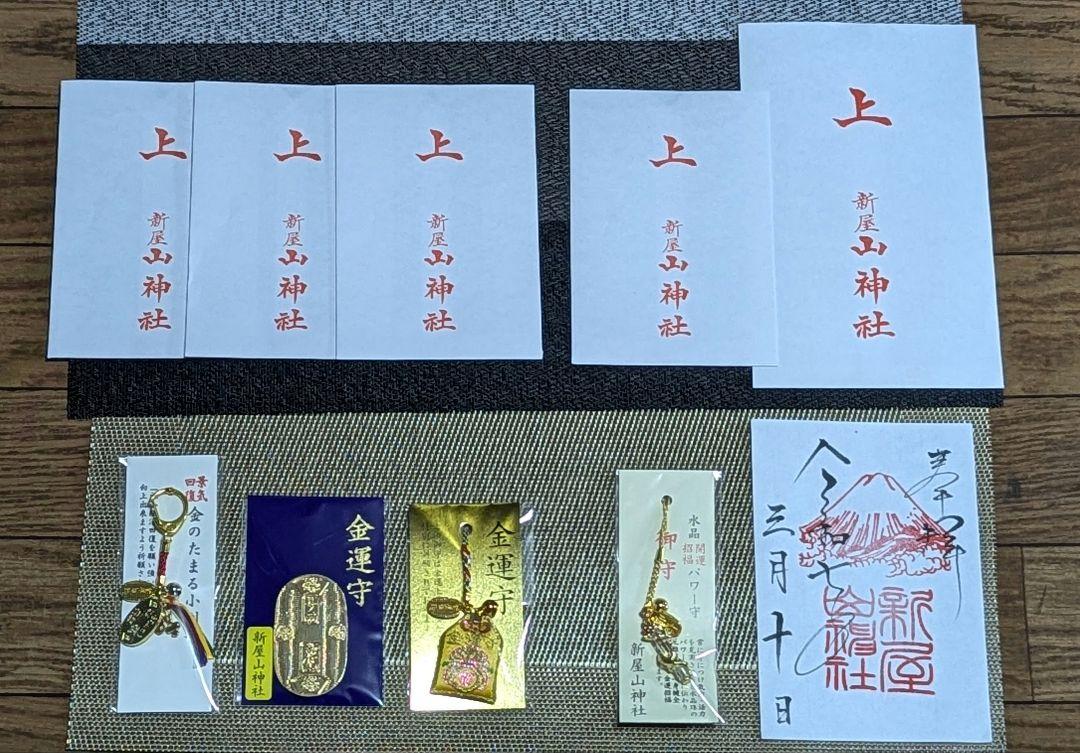 上
新屋山神社
上
新屋山神社
上
新屋山神社
上
新屋山神社
上
新屋山神社
景気
回復
金のたまる小
向上出来ますよう祈願さ
金運守
新屋山神社
金運守
水晶
開運
招福
パワー守
御守
新屋山神社
奉拝
令和七
三月十日
新屋
山神社